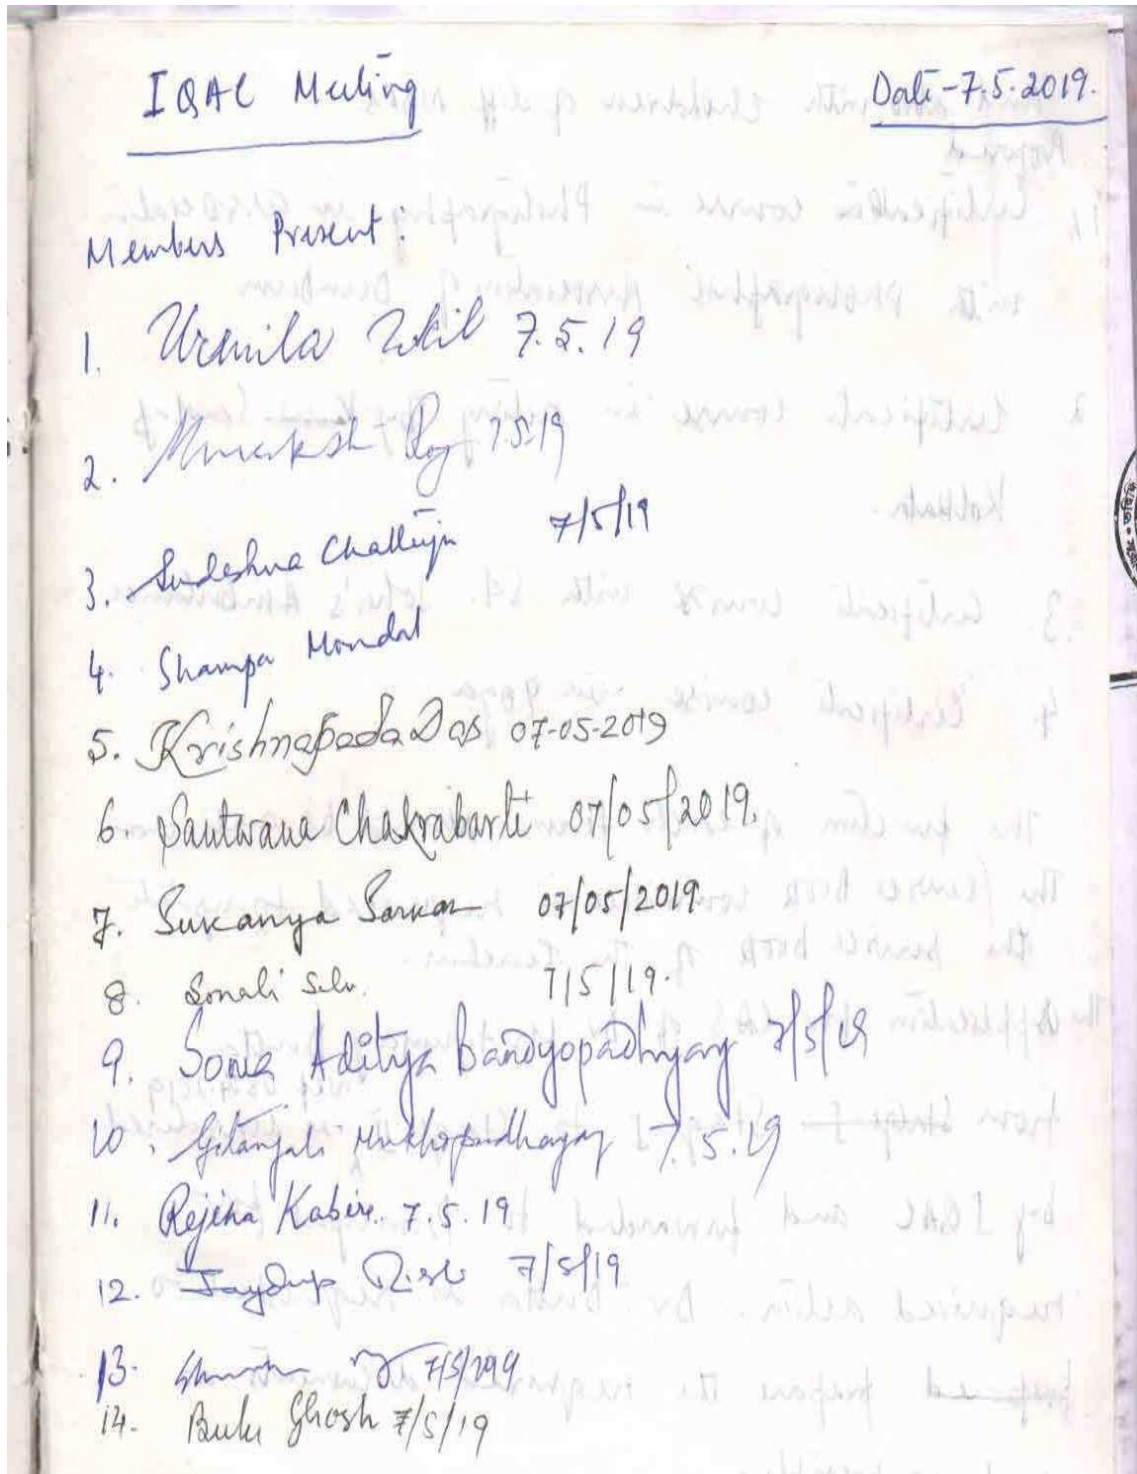 IQAC Meeting
Date-7.5.2019.
Members Present:
1. Urmila Ukil 7.5.19
2. Roy 7.5.19
3. Sudeshna Chatterjee 7/5/19
4. Shampa Mondal
5. Krishnapada Das 07-05-2019
6. Santwana Chakrabarti 07/05/2019.
7. Sukanya Sarkar 07/05/2019
8. Sonali 7/5/19.
9. Soma Aditya Bandyopadhyay 7/5/19
10. Gitanjali Mukhopadhayay 7.5.19
11. Rejina Kabir. 7.5.19
12. 7/5/19
13.
14. Bulu Ghosh 7/5/19